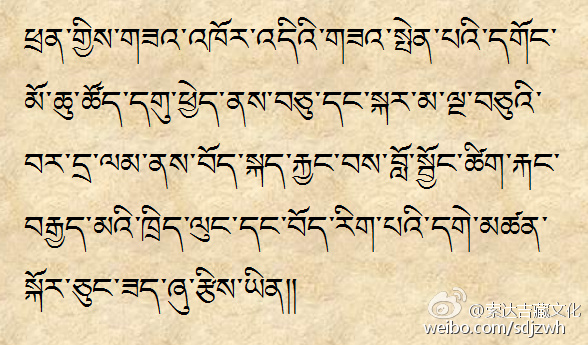 ཕྲན་གྱིས་གཟའ་འཁོར་འདིའི་གཟའ་སྤེན་པའི་དགོང་
མོ་ཆུ་ཚོད་དགུ་ཕྱེད་ནས་བཅུ་དང་སྐར་མ་ལྔ་བཅུའི་
བར་དྲ་ལམ་ནས་བོད་སྐད་རྐྱང་བས་བློ་སྦྱོང་ཚིག་རྐང་
བརྒྱད་མའི་ཁྲིད་ལུང་དང་བོད་རིག་པའི་དགེ་མཚན་
སྐོར་ཅུང་ཟད་ཞུ་རྩིས་ཡིན།།
@索达吉藏文化
weibo.com/sdjzwh